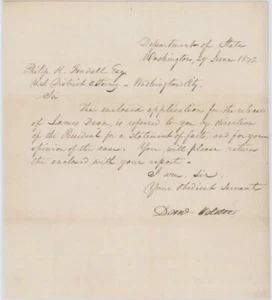 Department of State
Washington, 29 June 1842
Philip R. Fendall Esq
U.S. District Attorney - Washington City.
Sir
The enclosed application for the release
of James Dean, is referred to you by direction
of the President for a statement of facts, and for your
opinion of the case. You will please return
the enclosed with your report.
I am, Sir,
Your Obedient Servant
Danl Webster